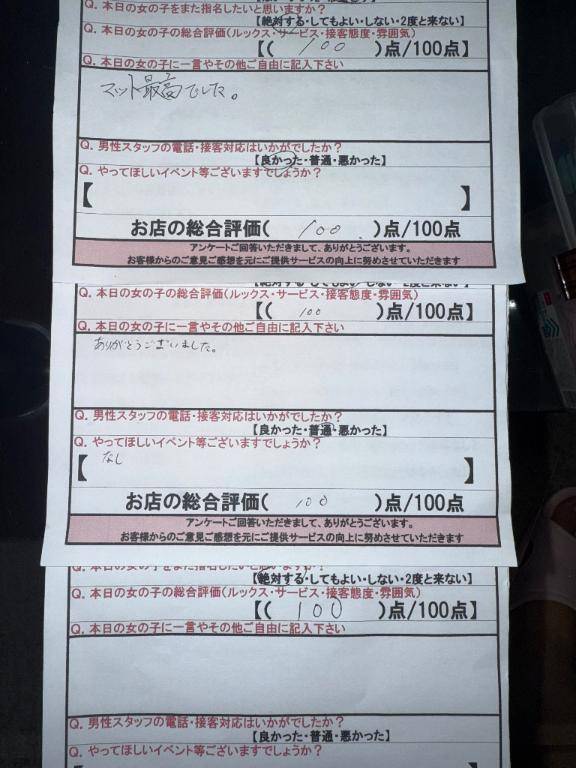 Q. 本日の女の子をまた指名したいと思いますか?
【絶対する・してもよい・しない・2度と来ない】
Q. 本日の女の子の総合評価(ルックス・サービス・接客態度・雰囲気)
【( 100 )点/100点】
Q. 本日の女の子に一言やその他ご自由に記入下さい
マット最高でした。
Q. 男性スタッフの電話・接客対応はいかがでしたか?
【良かった・普通・悪かった】
Q. やってほしいイベント等ございますでしょうか?
【 】
お店の総合評価( 100 )点/100点
アンケートご回答いただきまして、ありがとうございます。
お客様からのご意見ご感想を元にご提供サービスの向上に努めさせていただきます
【絶対する・してもよい・しない・2度と来ない】
Q. 本日の女の子の総合評価(ルックス・サービス・接客態度・雰囲気)
【( 100 )点/100点】
Q. 本日の女の子に一言やその他ご自由に記入下さい
ありがとうございました。
Q. 男性スタッフの電話・接客対応はいかがでしたか?
【良かった・普通・悪かった】
Q. やってほしいイベント等ございますでしょうか?
【 なし 】
お店の総合評価( 100 )点/100点
アンケートご回答いただきまして、ありがとうございます。
お客様からのご意見ご感想を元にご提供サービスの向上に努めさせていただきます
Q. 本日の女の子をまた指名したいと思いますか?
【絶対する・してもよい・しない・2度と来ない】
Q. 本日の女の子の総合評価(ルックス・サービス・接客態度・雰囲気)
【( 100 )点/100点】
Q. 本日の女の子に一言やその他ご自由に記入下さい
Q. 男性スタッフの電話・接客対応はいかがでしたか?
【良かった・普通・悪かった】
Q. やってほしいイベント等ございますでしょうか?